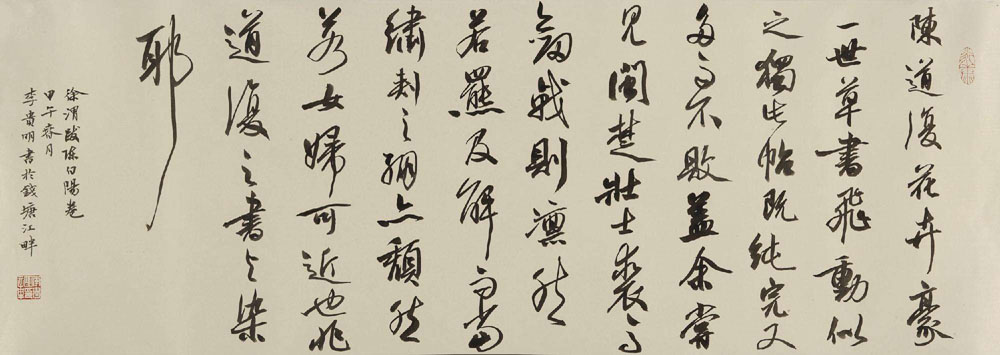 陳道復花卉豪
一世草書飛動似
之獨此帖既純完又
多而不敗蓋余嘗
見閩楚壯士裘馬
劒戟則凛然
若羆及解而當
繡刺之繃亦頹然
若女婦可近也非
道復之書與染
耶
徐渭跋陳白陽卷
甲午春月
李貴明書於錢塘江畔